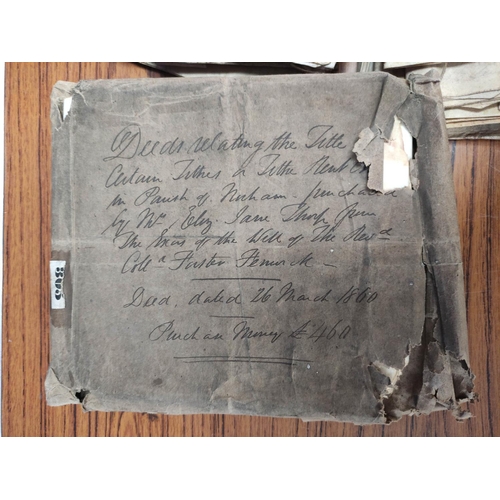 Deeds relating the Title
Certain Tithes & Tithe Rent
in Parish of Norham purchased
by Mrs Eliz. Jane Thorp from
The Exors of the Will of The Revd
Colld Forster Fenwick
Deed, dated 26 March 1860
Purchase Money £460